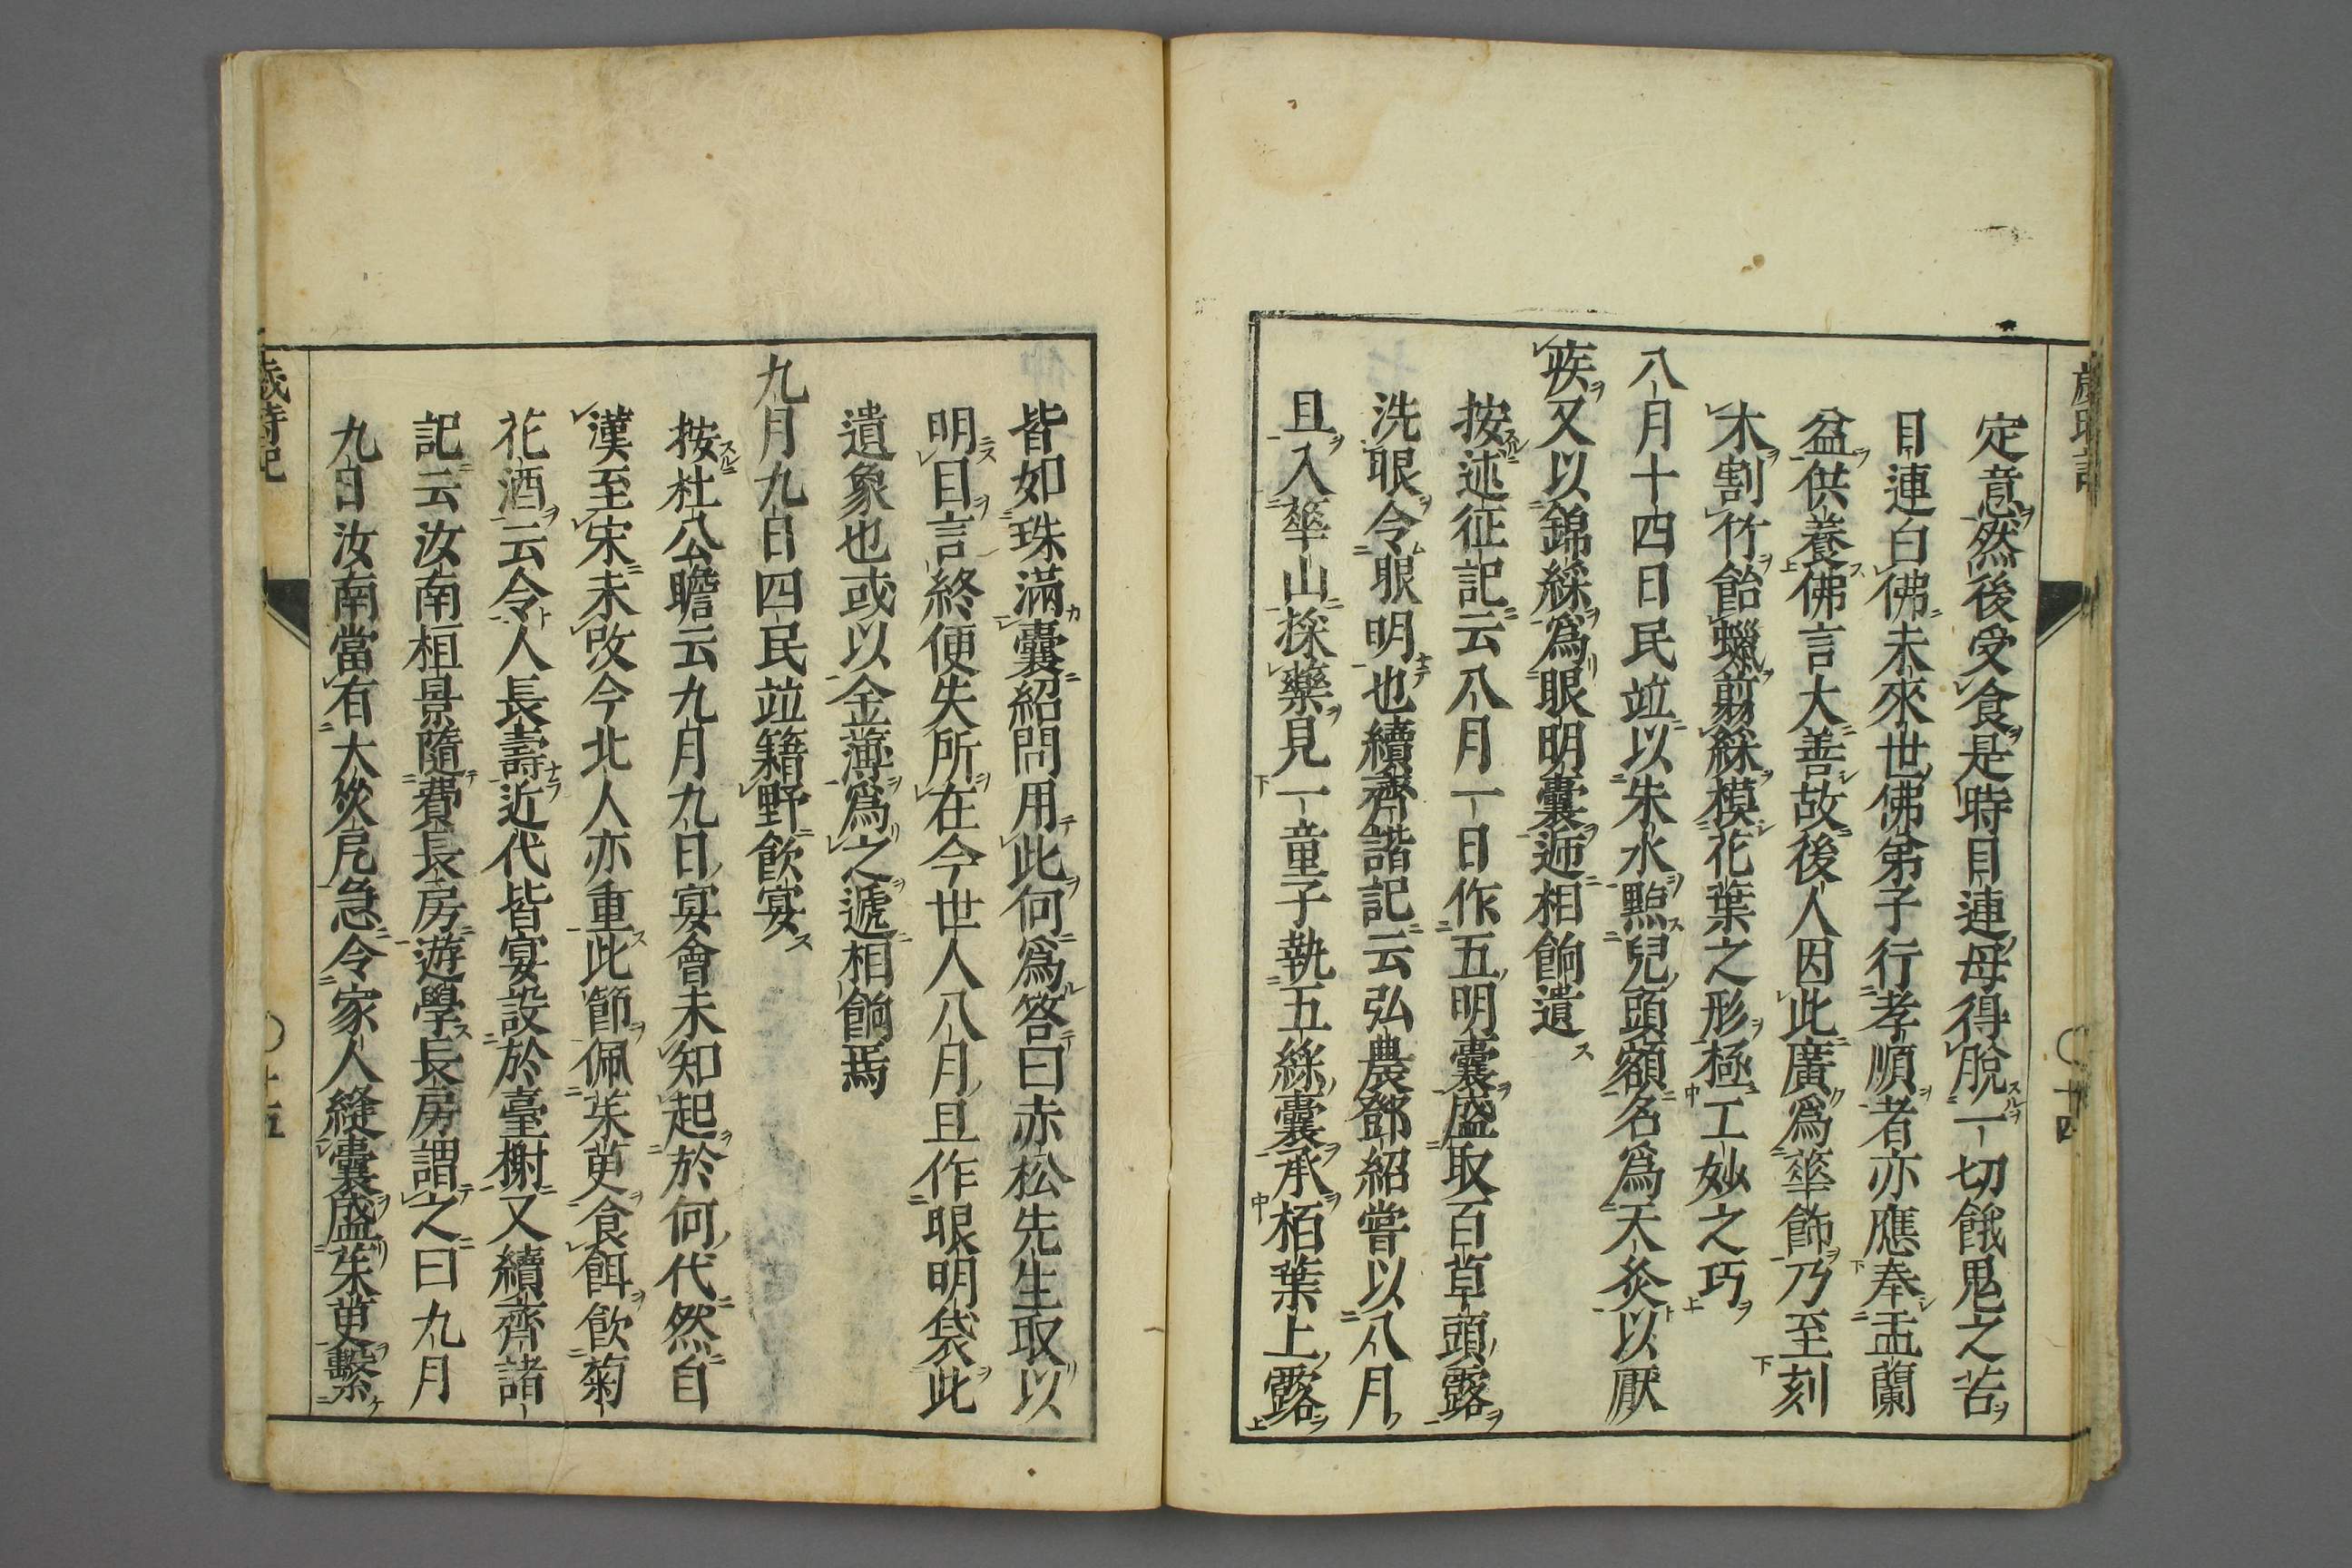 定意然後受食是時目連母得脫一切餓鬼之苦
目連白佛未來世佛弟子行孝順者亦應奉盂蘭
盆供養佛言大善故後人因此廣爲華飾乃至刻
木割竹飴蠟剪綵模花葉之形極工妙之巧
八月十四日民竝以朱水㸃兒頭額名爲天灸以厭
疾又以錦綵爲眼明囊逓相餉遺
按述征記云八月一日作五明囊盛取百草頭露
洗眼令眼明也續齊諧記云弘農鄧紹嘗以八月
旦入華山採藥見一童子執五綵囊承栢葉上露
皆如珠滿囊紹問用此何爲答曰赤松先生取以
明目言終便失所在今世人八月旦作眼明袋此
遺象也或以金薄爲之遞相餉焉
九月九日四民竝籍野飮宴
按杜公瞻云九月九日宴會未知起於何代然自
漢至宋未改今北人亦重此節佩茱萸食餌飮菊
花酒云令人長壽近代皆宴設於臺榭又續齊諧
記云汝南桓景隨費長房遊學長房謂之曰九月
九日汝南當有大災厄急令家人縫囊盛茱萸繫
歲時記
十四
歲時記
十五